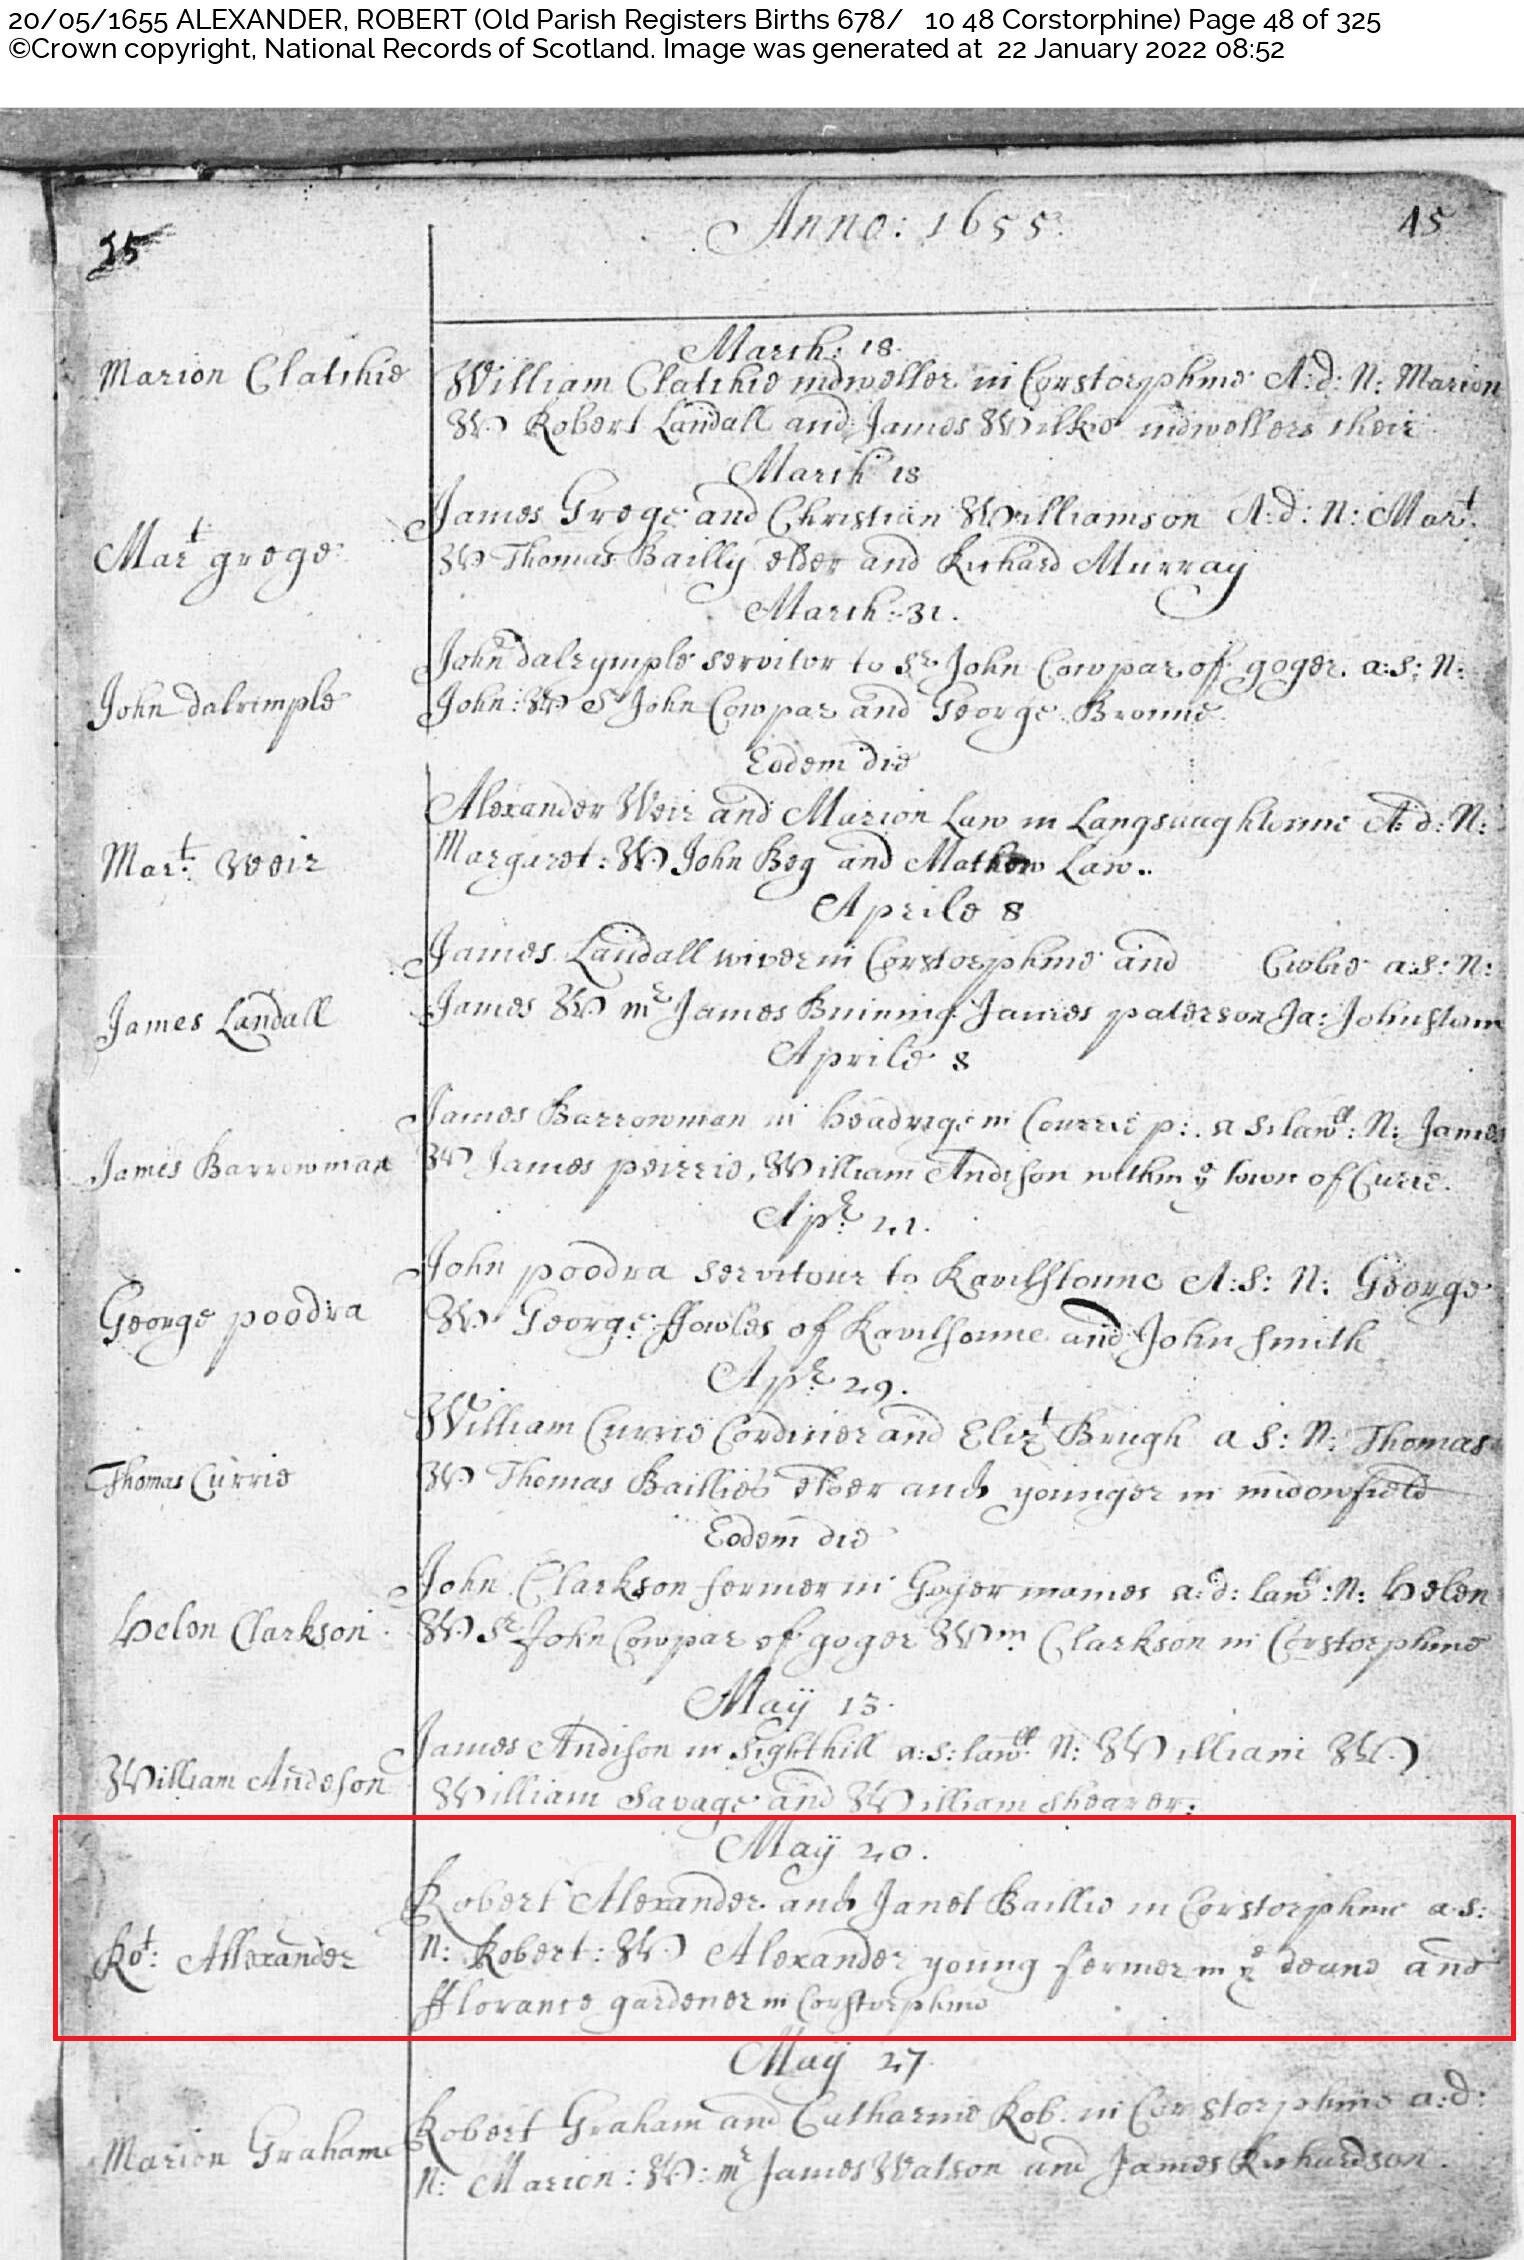 20/05/1655 ALEXANDER, ROBERT (Old Parish Registers Births 678/ 10 48 Corstorphine) Page 48 of 325
©Crown copyright, National Records of Scotland. Image was generated at 22 January 2022 08:52
Anno: 1655
45
March: 18.
Marion Clatchie
William Clatchie indweller in Corstorphine A:d: N: Marion
W Robert Landall and James Wilkie indwellers their
March 18
James Grege and Christian Williamson A:d: N: Mart.
Mart grege
W Thomas Bailly elder and Richard Murray
March: 31.
John dalrymple servitor to Sr John Cowpar of goger. a:s: N:
John dalrimple
John: W Sr John Cowpar and George Broune
Eodem die
Alexander Weir and Marion Law in Langsaughtoune A:d: N:
Mart: Weir
Margaret: W John Beg and Mathew Law..
Aprile 8
James Landall wiver in Corstorphine and Cwbie a:s: N:
James Landall
James W mr James Buining James paterson Ja: Johnstown
Aprile 8
James Barrowman in headrige in Currie p: a s: lawll: N: James
James Barrowman
W James peirrie, William Andison within ye town of Currie.
Apr: 21.
John poodra servitour to Ravilstoune A:s: N: George
George poodra
W George ffowles of Ravilstoune and John Smith
Apr: 29.
William Currie Cordiner and Elizt Brugh a s: N: Thomas
Thomas Currie
W Thomas Baillies elder and younger in midowfield
Eodem die
John Clarkson fermer in Goger maines a:d: lawll: N: Helen
Helen Clarkson
W Sr John Cowpar of goger Wm Clarkson in Corstorphine
May 13.
James Andison in Sighthill a:s: lawll. N: William W
William Andeson
William Savage and William Shearer:
May 20.
Robert Alexander and Janet Baillie in Corstorphine a.s:
Rot: Allexander
N: Robert: W Alexander young fermer in ye deane and
fflorance gardener in Corstorphine
May 27.
Robert Graham and Catharine Rob. in Corstorphine a:d:
Marion Grahame
N: Marion: W: mr James Watson and James Richardson.